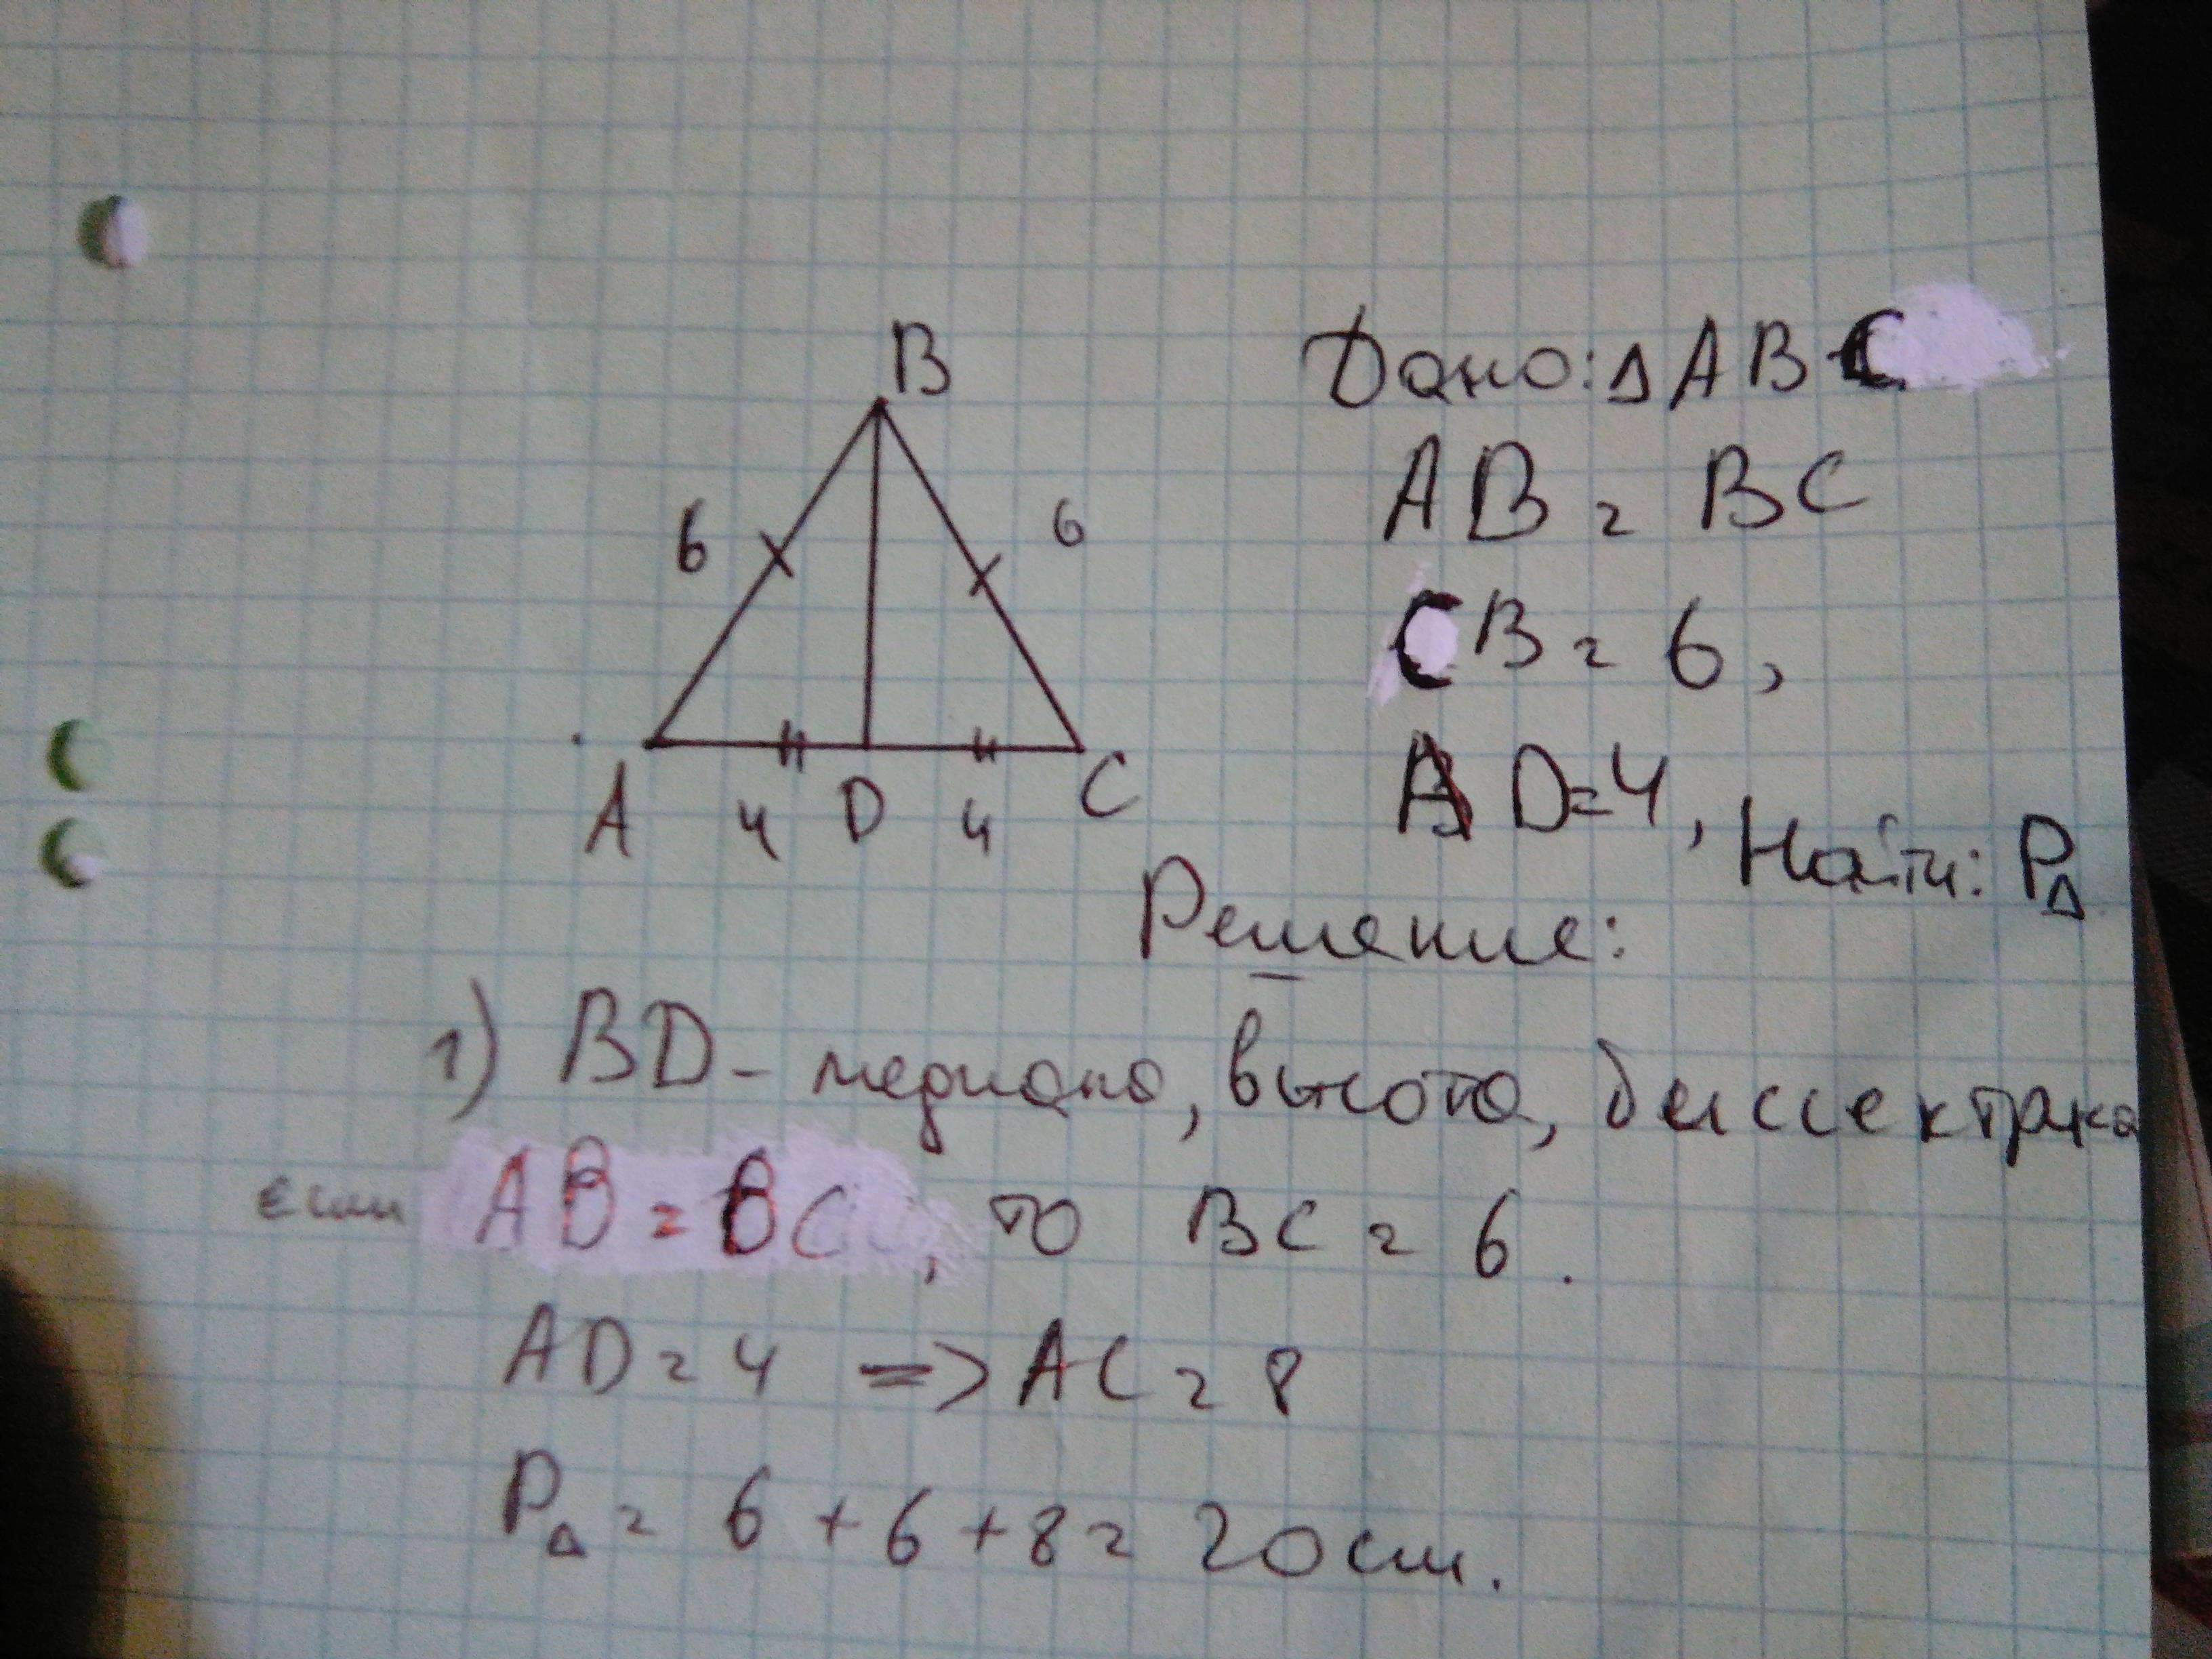 B
6 6
A 4 D 4 C
Дано: Δ ABC
AB = BC
CB = 6,
AD=4, Найти: PΔ
Решение:
1) BD - медиана, высота, биссектриса
если AB = BC, то BC = 6.
AD = 4 => AC = 8
PΔ = 6 + 6 + 8 = 20 см.